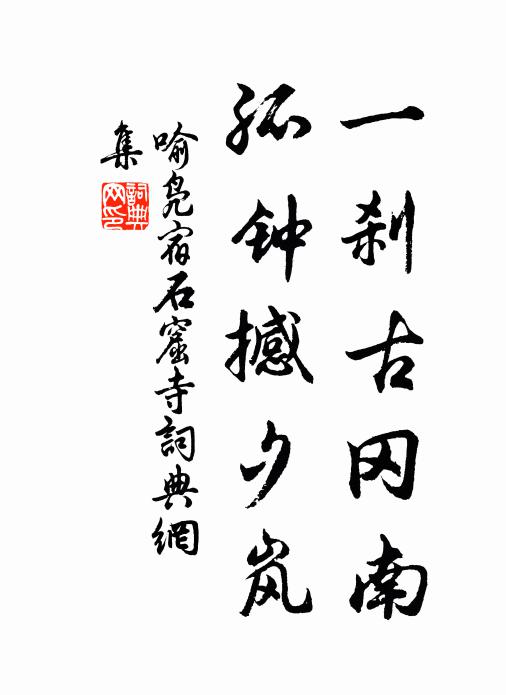 一刹古冈南
孤钟撼夕岚
喻凫宿石窟寺詞典網
集
詞典
网印